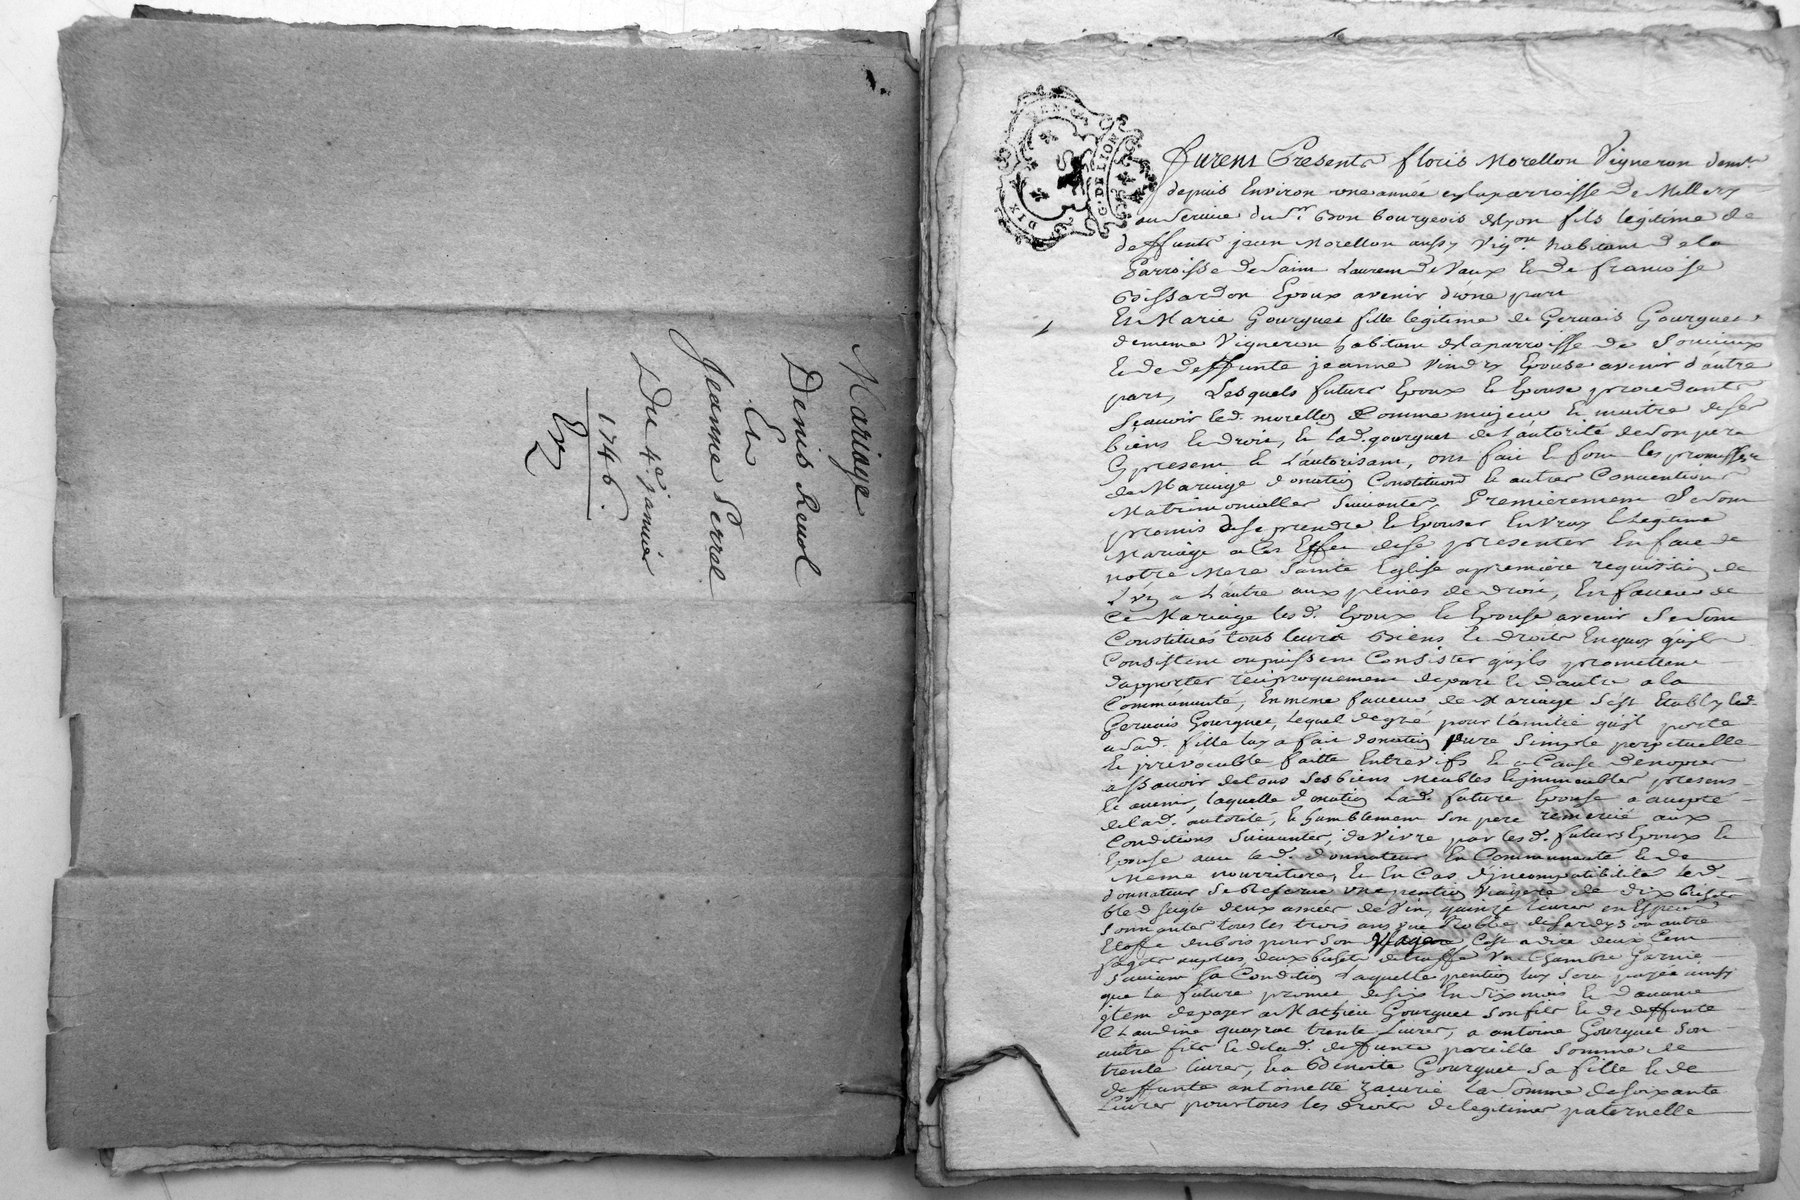 Mariage
Denis Revol
Et
Jeanne Perral
Du 4e janvier
1746.
DIX DEN.
G. DE LION
furent Presents floris Morellon Vigneron demt
depuis Environ une année en la parroisse de Millery
au service du Sr. Bon bourgeois de lyon fils légitime de
deffunt jean Morellon aussy Vigon. habitant de la
Parroisse de Saint Laurent de Vaux et de francoise
Bissardon Epoux avenir d'une part
Et Marie Gourguet fille legitime de Gervais Gourguet
de meme Vigneron habitant de la parroisse de Soucieux
et de deffunte jeanne Vindry Epouse avenir d'autre
part, Lesquels futurs Epoux et Epouse procedants
Scavoir led. morellon Comme majeur et maitre de ses
biens et droits, et lad. gourguet de l'autorité de son pere
y present et L'autorisant, ont fait et font les promesses
de Mariage donation Constitution et autres Conventions
Matrimonialles Suivantes, Premierement Se sont
promis de se prendre et Epouser En vray et Legitime
Mariage a Cet Effet de se presenter En face de
notre Mere Sainte Eglise a premiere requisition de
L'un a L'autre aux peines de droit, En faveur de
Ce Mariage lesd. Epoux et Epouse avenir Se sont
Constitués tous leurs Biens et droits En quoy qu'ils
Consistent ou puissent Consister qu'ils promettent
d'apporter reciproquement de part et d'autre a la
Communauté, En meme faveur de Mariage s'est Etably led.
Gervais Gourguet, Lequel de gré pour l'amitié qu'il porte
a sad. fille luy a fait donation pure Simple perpetuelle
et irrévocable faitte Entre vifs et a Cause de nopces
assavoir de tous Ses biens Meubles et immeubles presens
et avenir, laquelle donation Lad. future Epouse a accepté
de lad. autorité, et humblement Son pere remercié aux
Conditions Suivantes, de Vivre par lesd. futurs Epoux et
Epouse avec led. donnateur En Communauté et de
Meme nourriture, et En Cas d'incompatibilité led.
donnateur Se Reserve une pention Viagere de dix bichets
bled seigle deux anées de Vin, quinze livres en Especes
Sonnantes tous les trois ans une Robbe de sardys ou autre
Etoffe du bois pour son Usage C'est a dire deux Cent
fagots deux bichets de truffe Une Chambre Garnie
Suivant Sa Condition Laquelle pention luy sera payée ainsy
que La future promet de six En six mois et d'avance
item de payer a Mathieu Gourguet Son fils et de deffunte
Claudine trente Livres, a antoine Gourguet Son
autre fils et de lad. deffunte pareille Somme de
trente livres, et a Benoite Gourguet Sa fille et de
deffunte antoinette La Somme de soixante
Livres pour tous les droits de legitimes paternelle